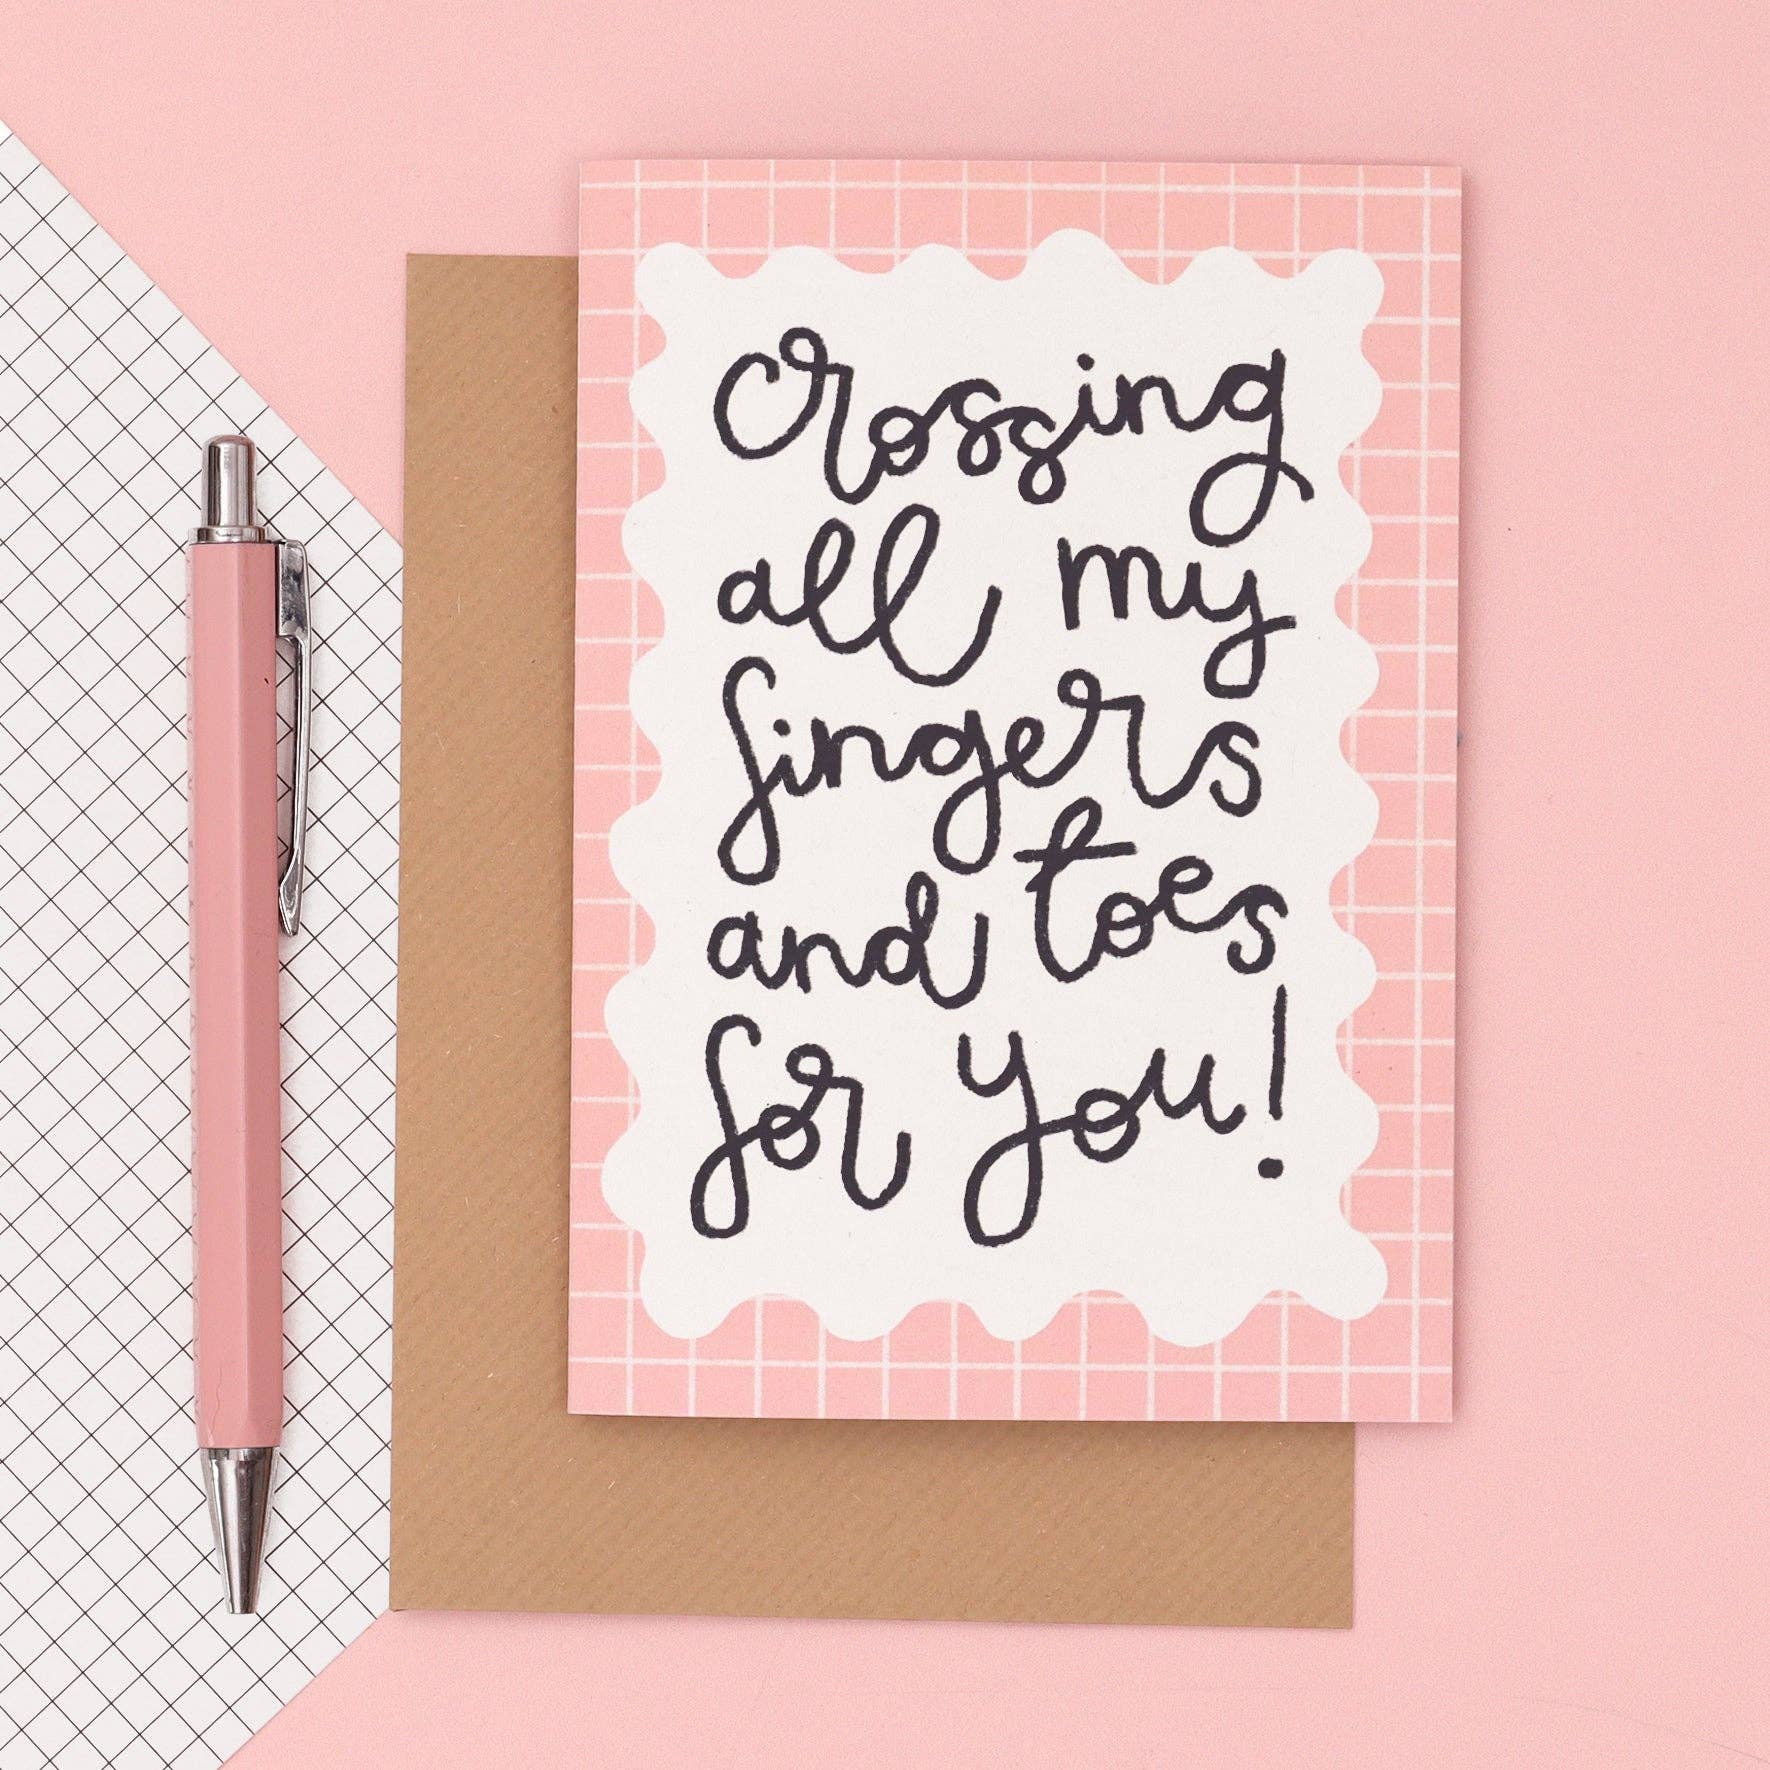 Crossing
all my
fingers
and toes
for you!